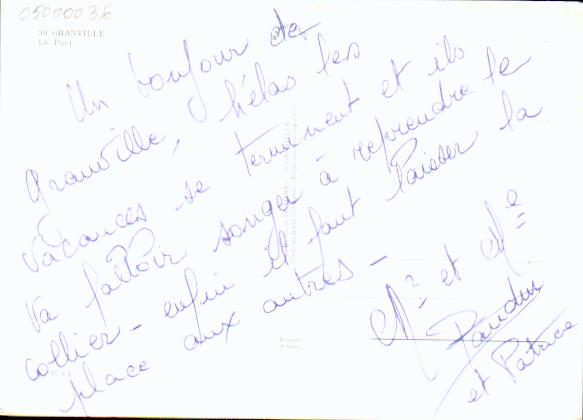 05000036
50 GRANVILLE
Le Port
Un bonjour de
Granville, hélas les
vacances se terminent et ils
va falloir songer à reprendre le
collier - enfin il faut laisser la
place aux autres -
Mr et Me
et Patrice